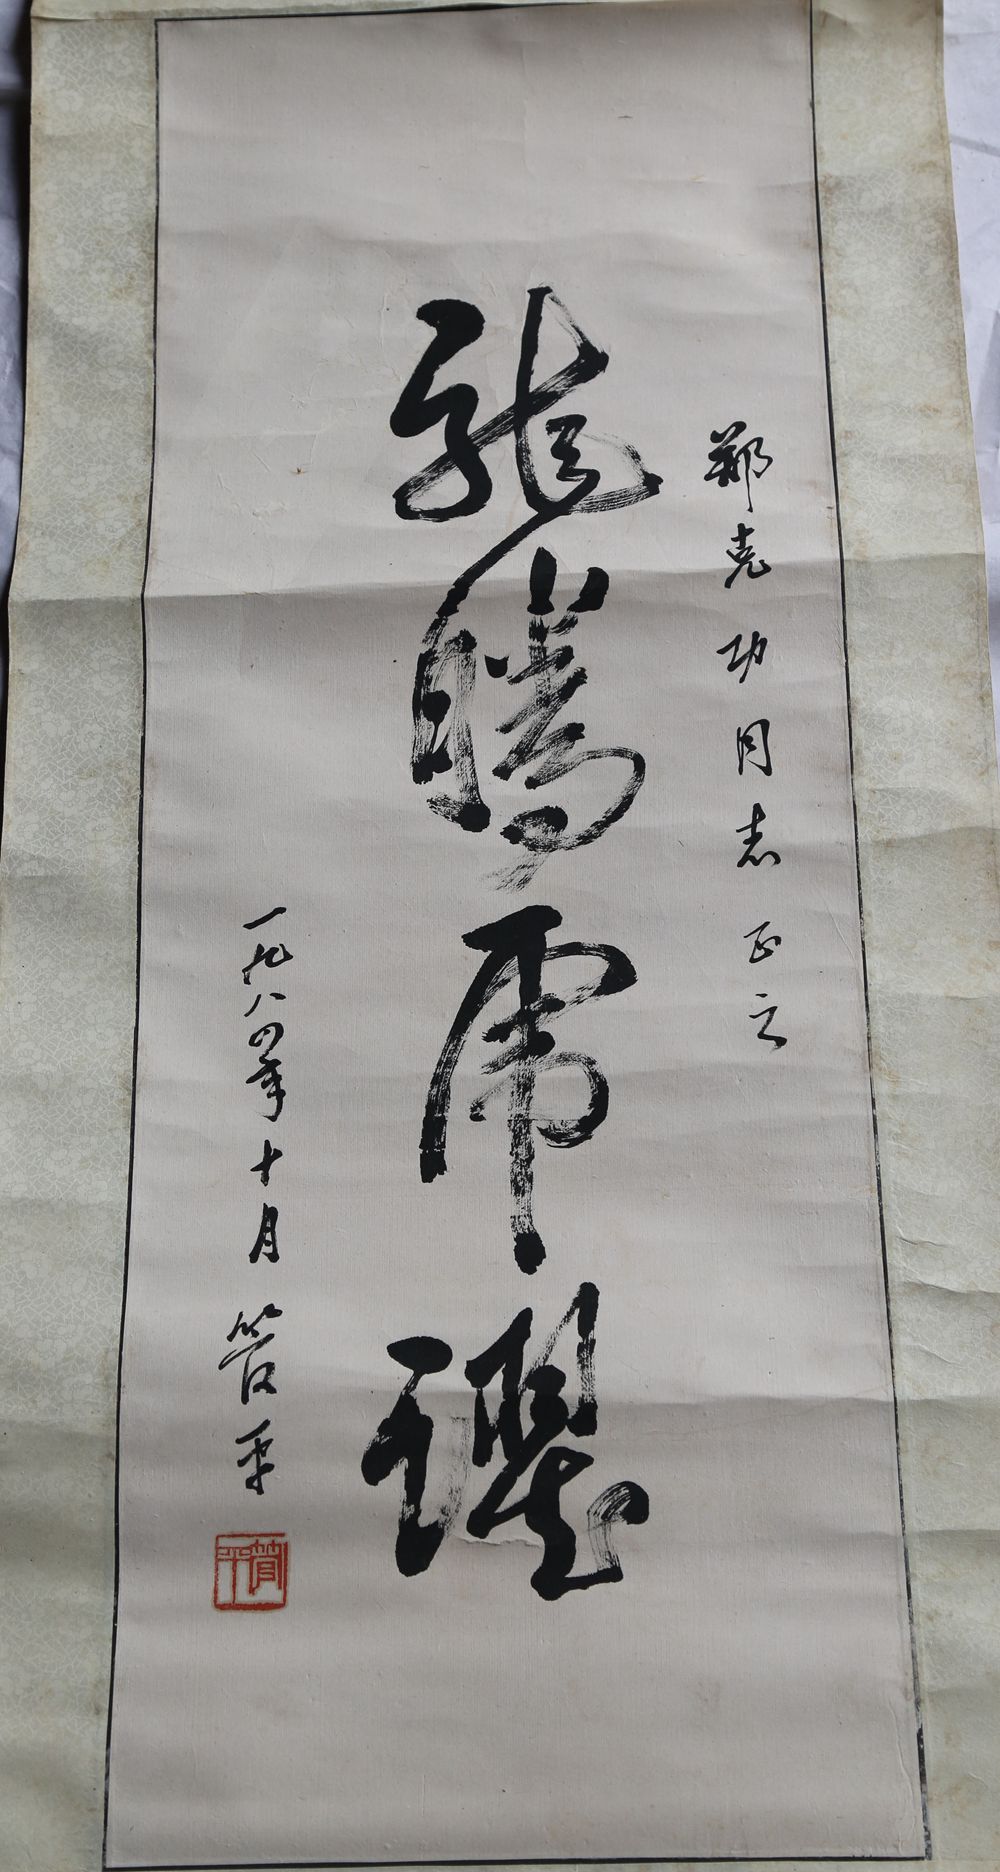 郑克功同志 正之
龍騰虎躍
一九八四年十月 管平
管平